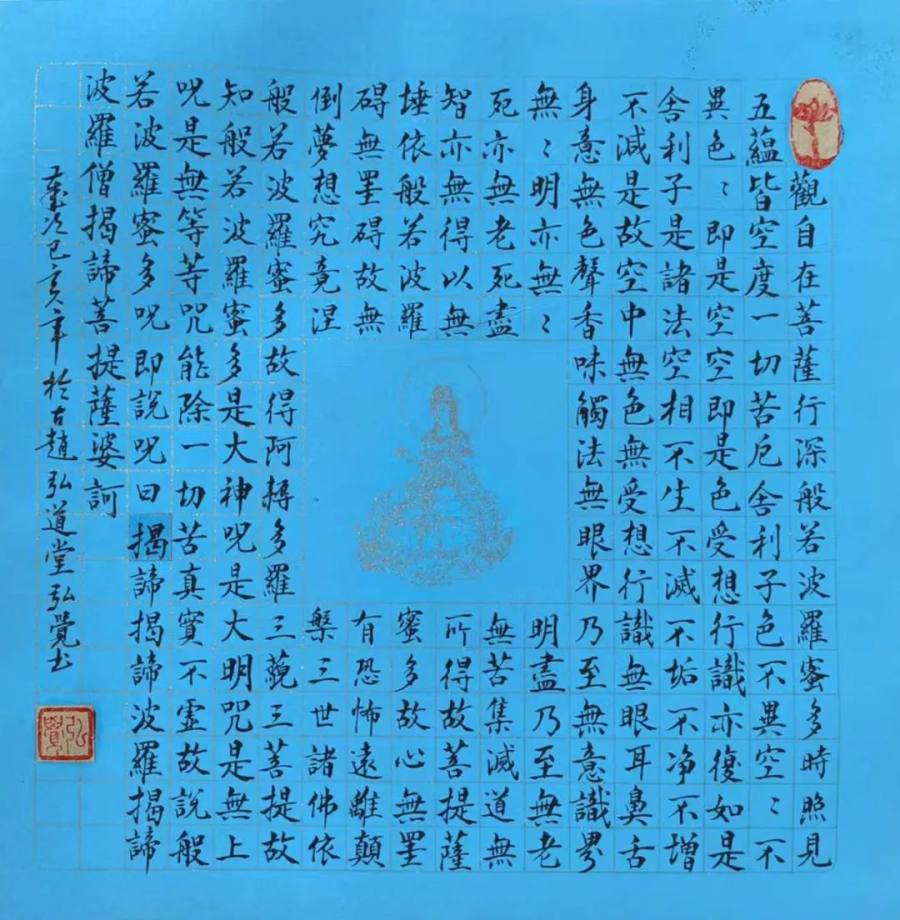 觀自在菩薩行深般若波羅蜜多時照見
五蘊皆空度一切苦厄舍利子色不異空〻不
異色〻即是空空即是色受想行識亦復如是
舍利子是諸法空相不生不滅不垢不净不增
不減是故空中無色無受想行識無眼耳鼻舌
身意無色聲香味觸法無眼界乃至無意識界
無〻明亦無〻明盡乃至無老
死亦無老死盡無苦集滅道無
智亦無得以無所得故菩提薩
埵依般若波羅蜜多故心無罣
碍無罣碍故無有恐怖遠離顛
倒夢想究竟涅槃三世諸佛依
般若波羅蜜多故得阿耨多羅三藐三菩提故
知般若波羅蜜多是大神呪是大明咒是無上
呪是無等等咒能除一切苦真實不虛故說般
若波羅蜜多呪即說呪曰揭諦揭諦波羅揭諦
波羅僧揭諦菩提薩婆訶
歲次己亥年於古趙弘道堂弘覺書
弘覺